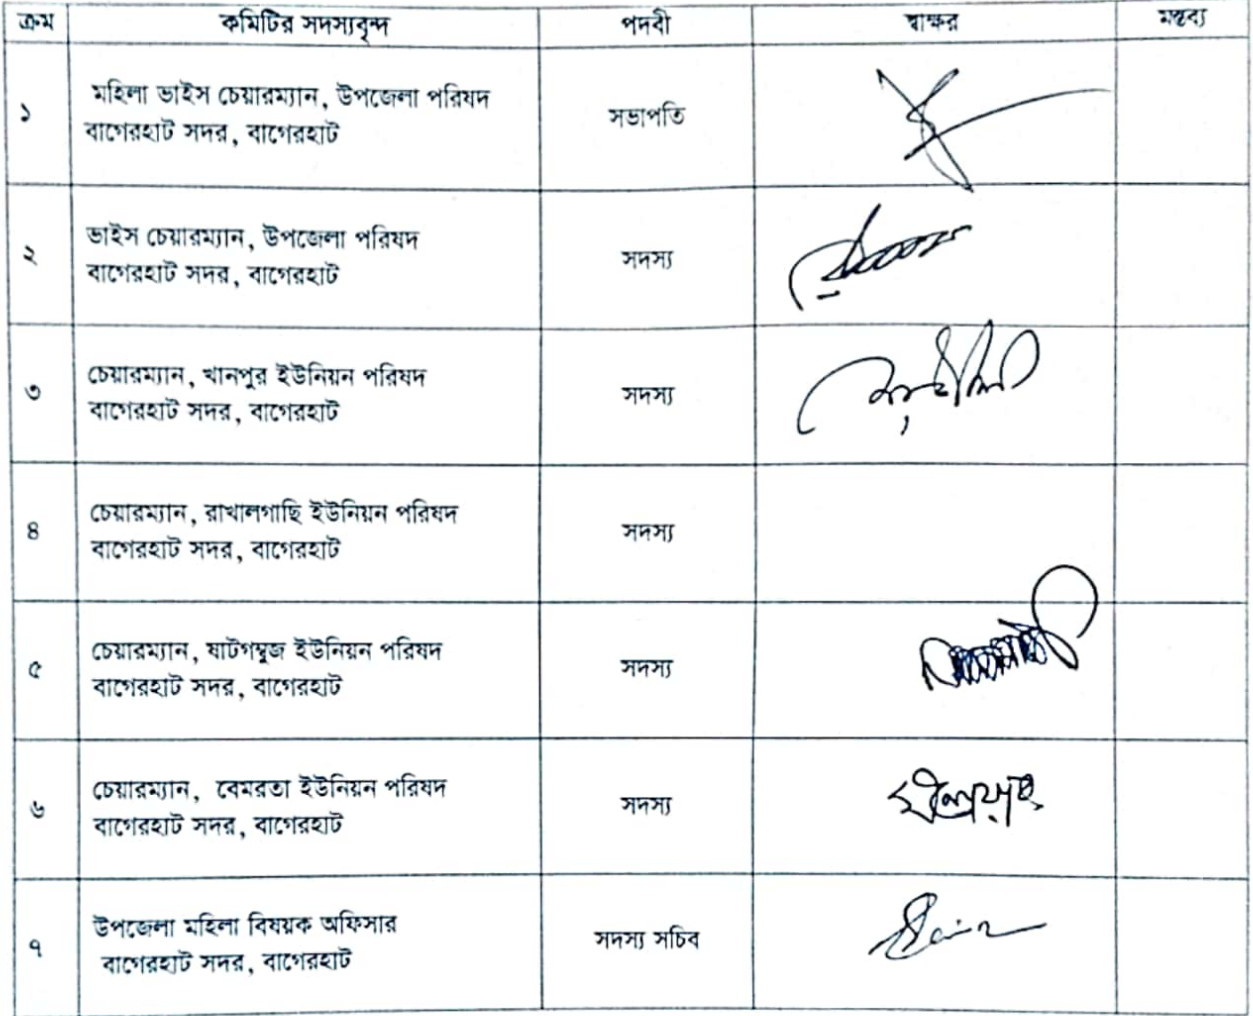 ক্রম কমিটির সদস্যবৃন্দ পদবী স্বাক্ষর মন্তব্য
১ মহিলা ভাইস চেয়ারম্যান, উপজেলা পরিষদ
বাগেরহাট সদর, বাগেরহাট
সভাপতি
২ ভাইস চেয়ারম্যান, উপজেলা পরিষদ
বাগেরহাট সদর, বাগেরহাট
সদস্য
৩ চেয়ারম্যান, খানপুর ইউনিয়ন পরিষদ
বাগেরহাট সদর, বাগেরহাট
সদস্য
৪ চেয়ারম্যান, রাখালগাছি ইউনিয়ন পরিষদ
বাগেরহাট সদর, বাগেরহাট
সদস্য
৫ চেয়ারম্যান, ষাটগম্বুজ ইউনিয়ন পরিষদ
বাগেরহাট সদর, বাগেরহাট
সদস্য
৬ চেয়ারম্যান, বেমরতা ইউনিয়ন পরিষদ
বাগেরহাট সদর, বাগেরহাট
সদস্য
৭ উপজেলা মহিলা বিষয়ক অফিসার
বাগেরহাট সদর, বাগেরহাট
সদস্য সচিব